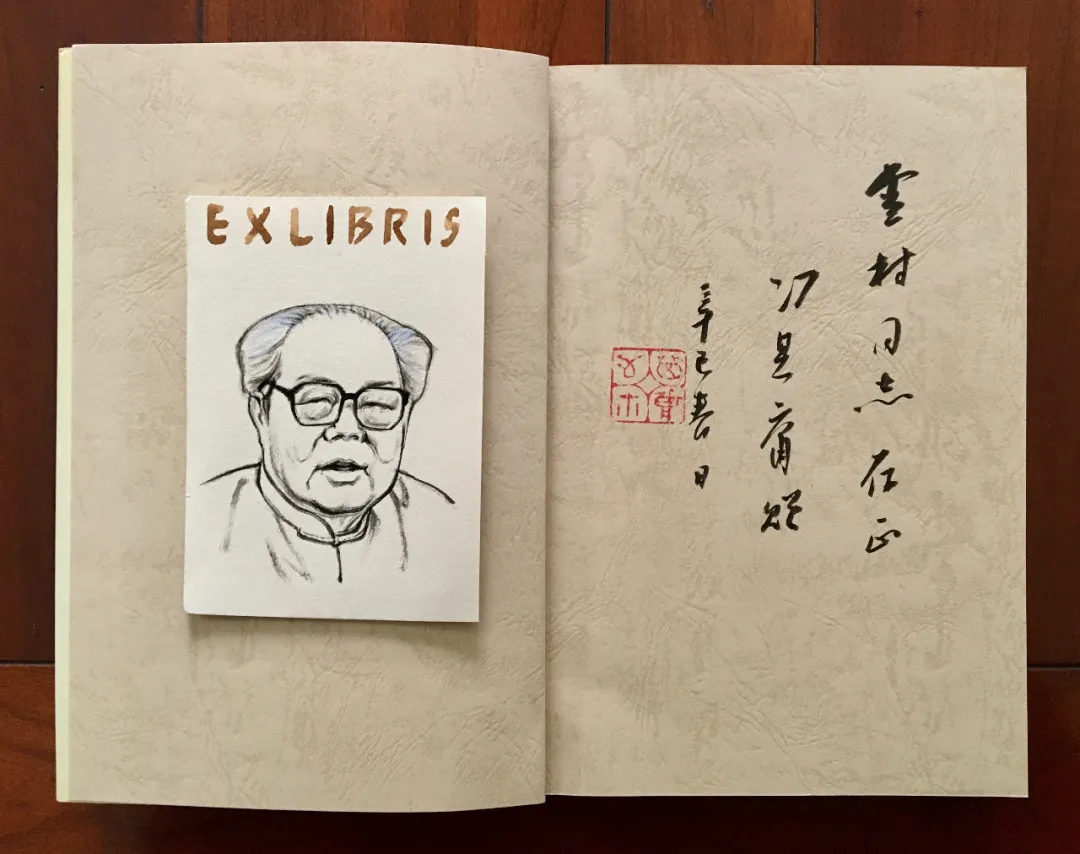 EXLIBRIS
村同志存正
冯其庸赠
辛巳春日